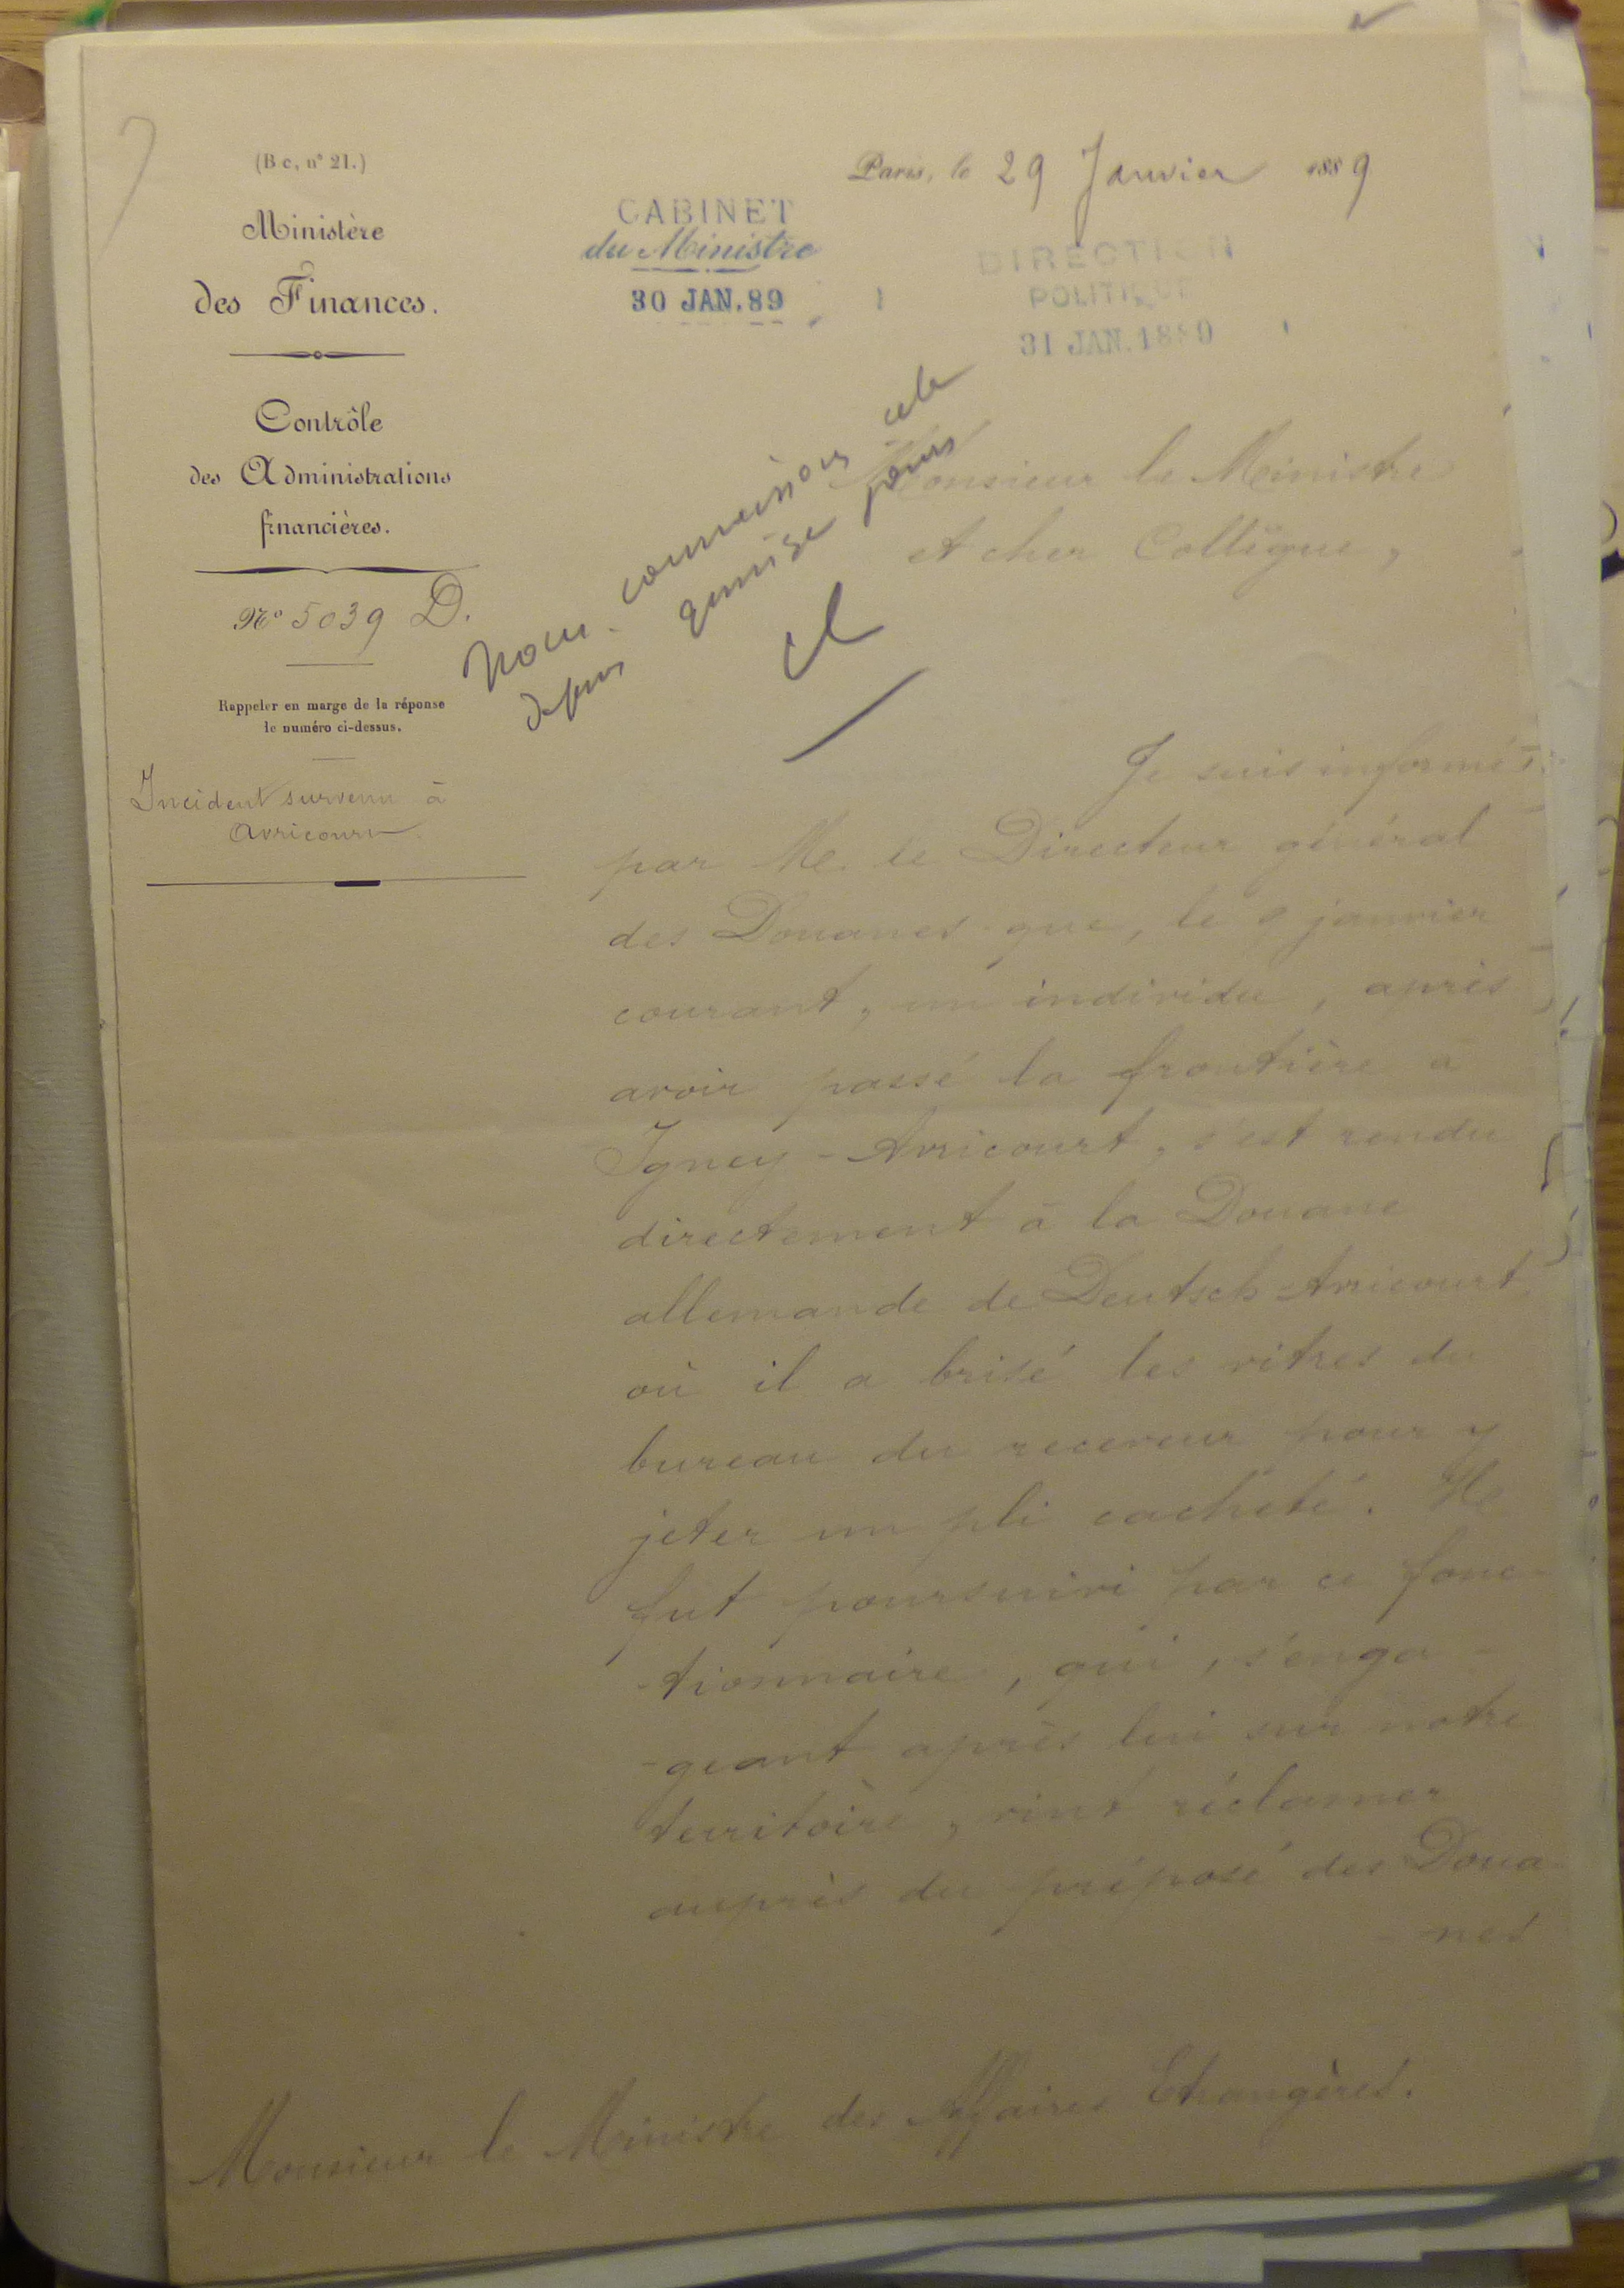 (B c, n° 21.)
Ministère
des Finances.
Contrôle
des Administrations
financières.
N° 5039 D.
Rappeler en marge de la réponse
le numéro ci-dessus.
Incident survenu à
Avricourt
Paris, le 29 Janvier 1889
CABINET
du Ministre
30 JAN. 89
DIRECTION
POLITIQUE
31 JAN. 1889
Nous connaissons cela
depuis quinze jours
Monsieur le Ministre
et cher Collègue,
Je suis informé
par M. le Directeur général
des Douanes que, le 9 janvier
courant, un individu, après
avoir passé la frontière à
Igney-Avricourt, s'est rendu
directement à la Douane
allemande de Deutsch-Avricourt
où il a brisé les vitres du
bureau du receveur pour y
jeter un pli cacheté. Il
fut poursuivi par ce fonc-
-tionnaire, qui, s'enga-
-geant après lui sur notre
territoire, vint réclamer
auprès du préposé des Doua
-nes
Monsieur le Ministre des Affaires Etrangères.